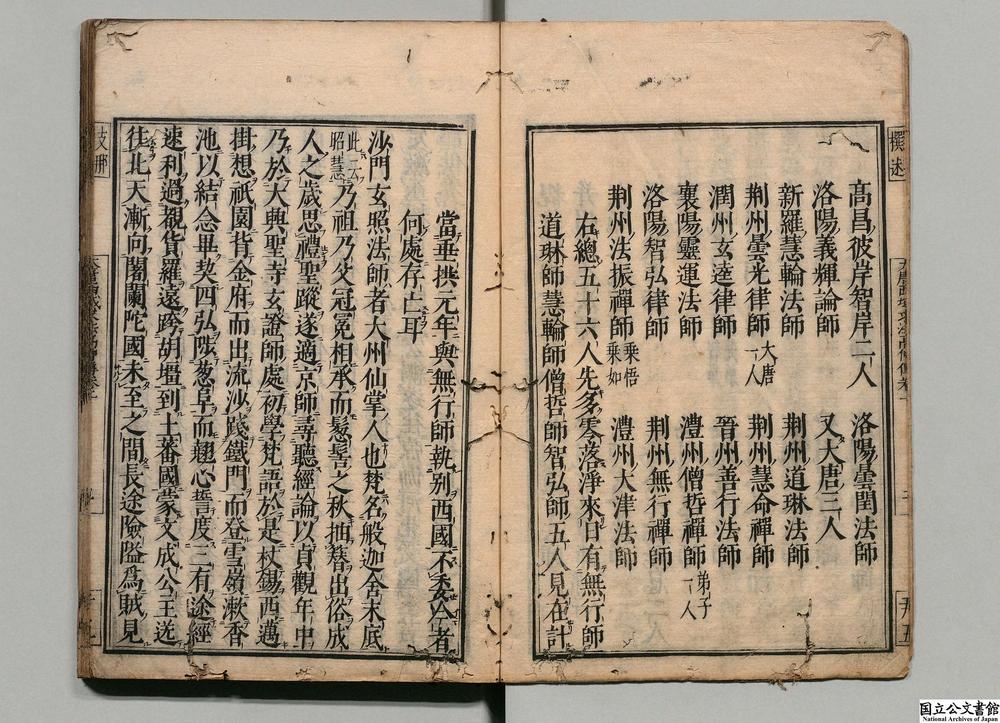 高昌彼岸智岸二人　洛陽曇閏法師
洛陽義輝論師　又大唐三人
新羅慧輪法師　荆州道琳法師
荆州曇光律師 大唐一人　荆州慧命禪師
潤州玄逵律師　晉州善行法師
襄陽靈運法師　澧州僧哲禪師 弟子一人
洛陽智弘律師　荆州無行禪師
荆州法振禪師 乘悟乘如　澧州大津法師
右總五十六人先多零落淨來日有無行師
道琳師慧輪師僧哲師智弘師五人見在計
當垂拱元年與無行師執别西國不委今者
何處存亡耳
沙門玄照法師者大州仙掌人也梵名般迦舍末底
此云昭慧 乃祖乃父冠冕相承而髫髻之秋抽簪出俗成
人之歳思禮聖蹤遂適京師尋聽經論以貞觀年中
乃於大興聖寺玄證師處初學梵語於是杖錫西邁
掛想祇園背金府而出流沙踐鐵門而登雪嶺漱香
池以結念畢契四弘陟葱阜而翹心誓度三有途經
速利過覩貨羅遠跨胡壃到土蕃國蒙文成公主送
往北天漸向闍蘭陀國未至之間長途險隘爲賊見
撰述
支那
国立公文書館
National Archives of Japan